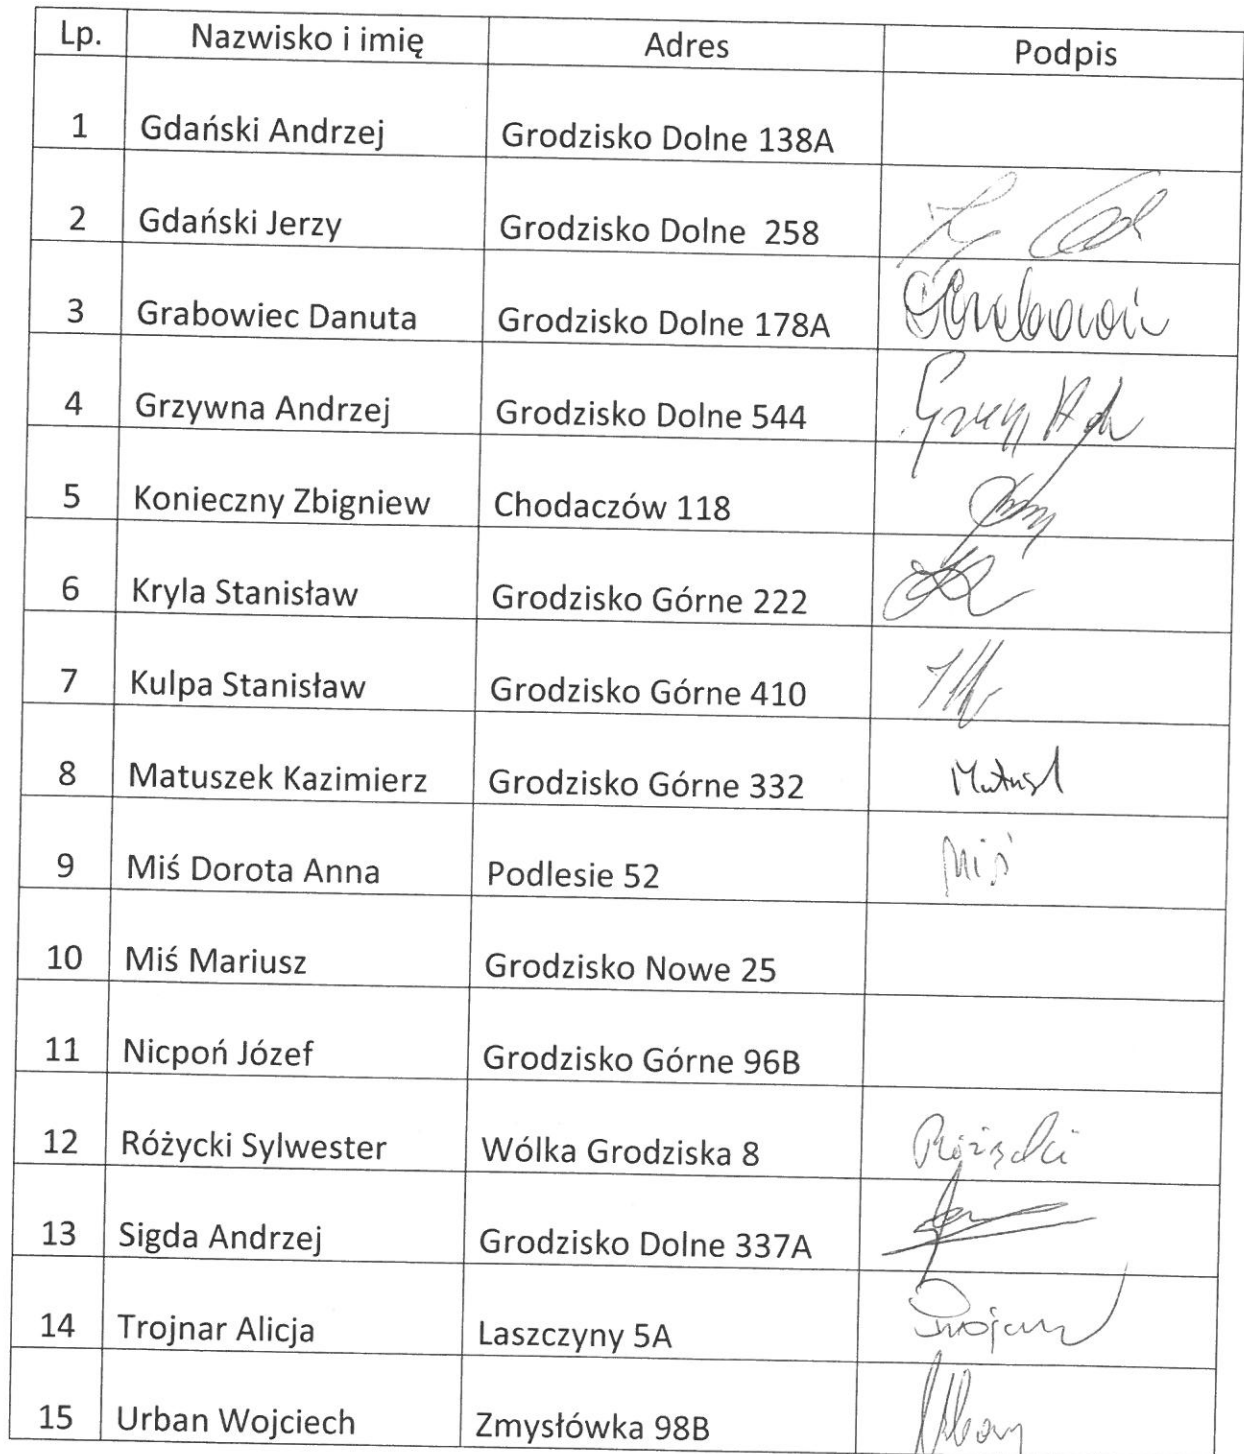 Lp. Nazwisko i imię Adres Podpis
1 Gdański Andrzej Grodzisko Dolne 138A
2 Gdański Jerzy Grodzisko Dolne 258
3 Grabowiec Danuta Grodzisko Dolne 178A
4 Grzywna Andrzej Grodzisko Dolne 544
5 Konieczny Zbigniew Chodaczów 118
6 Kryla Stanisław Grodzisko Górne 222
7 Kulpa Stanisław Grodzisko Górne 410
8 Matuszek Kazimierz Grodzisko Górne 332
9 Miś Dorota Anna Podlesie 52 Miś
10 Miś Mariusz Grodzisko Nowe 25
11 Nicpoń Józef Grodzisko Górne 96B
12 Różycki Sylwester Wólka Grodziska 8 Różycki
13 Sigda Andrzej Grodzisko Dolne 337A
14 Trojnar Alicja Laszczyny 5A
15 Urban Wojciech Zmysłówka 98B Urban